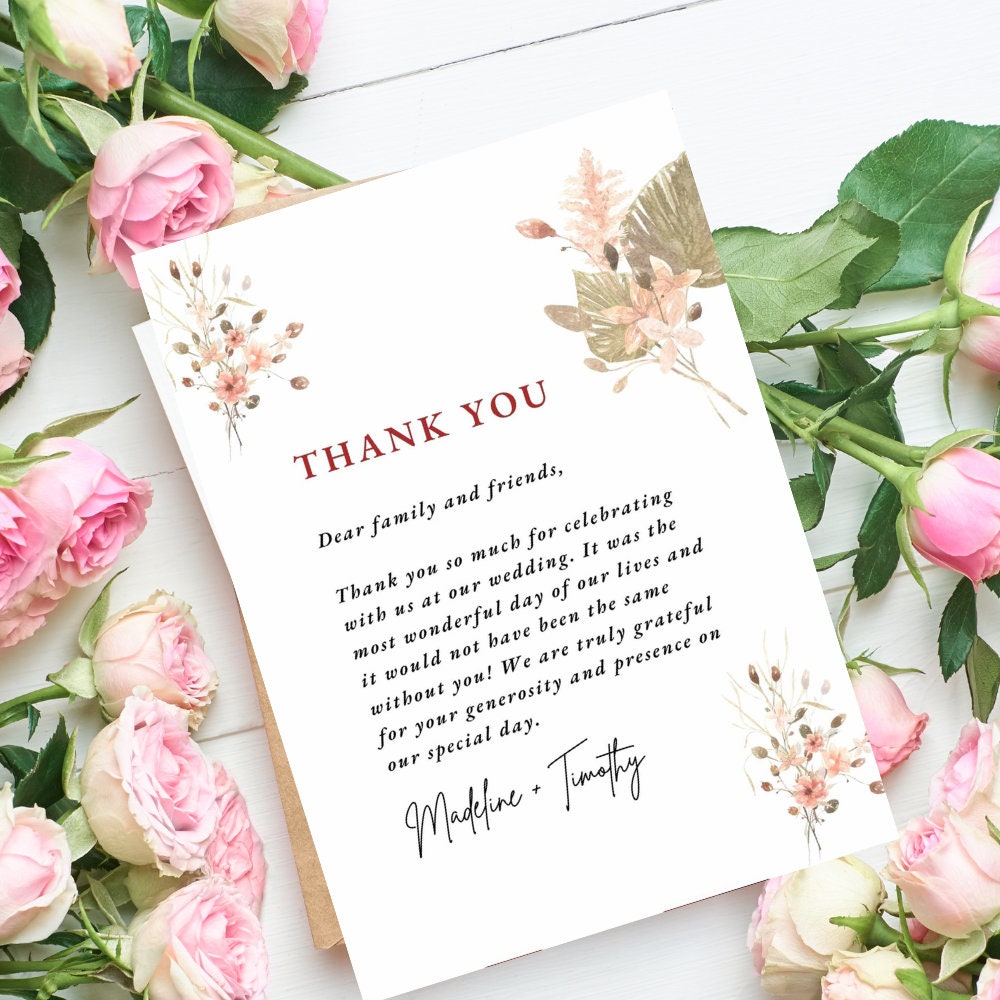 THANK YOU
Dear family and friends,
Thank you so much for celebrating
with us at our wedding. It was the
most wonderful day of our lives and
it would not have been the same
without you! We are truly grateful
for your generosity and presence on
our special day.
Madeline + Timothy